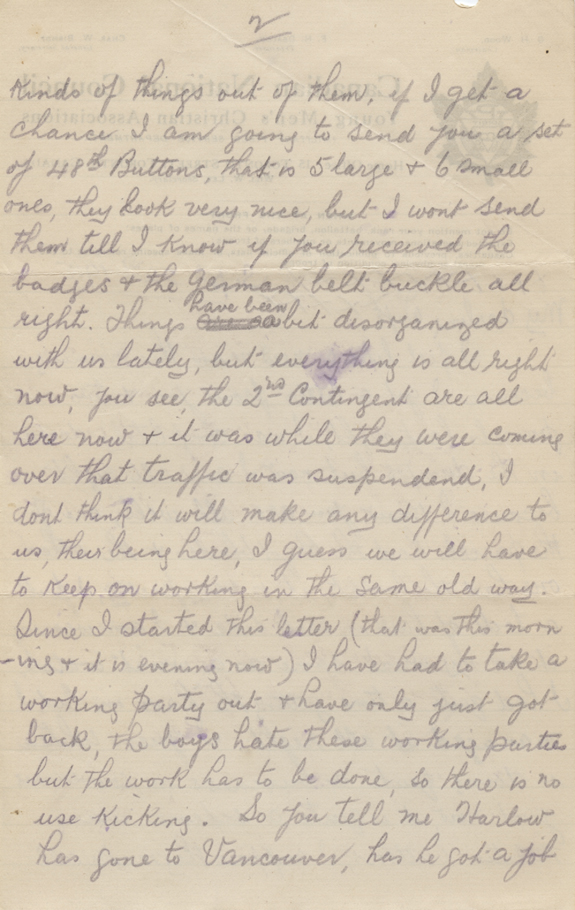 2
kinds of things out of them, if I get a
chance I am going to send you a set
of 48th Buttons, that is 5 large + 6 small
ones, they look very nice, but I wont send
them till I know if you received the
badges + the German belt buckle all
right. Things have been a bit disorganized
with us lately, but everything is all right
now, you see, the 2nd Contingent are all
here now + it was while they were coming
over that traffic was suspendend, I
dont think it will make any difference to
us, their being here, I guess we will have
to keep on working in the same old way.
Since I started this letter (that was this morn
-ing + it is evening now) I have had to take a
working party out + have only just got
back, the boys hate these working parties
but the work has to be done, so there is no
use kicking. So you tell me Harlow
has gone to Vancouver, has he got a job